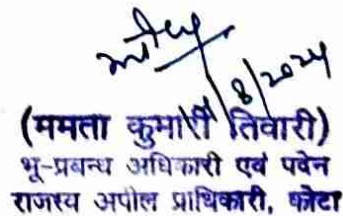 /8/2024
(ममता कुमारी तिवारी)
भू-प्रबन्ध अधिकारी एवं पदेन
राजस्व अपील प्राधिकारी, कोटा